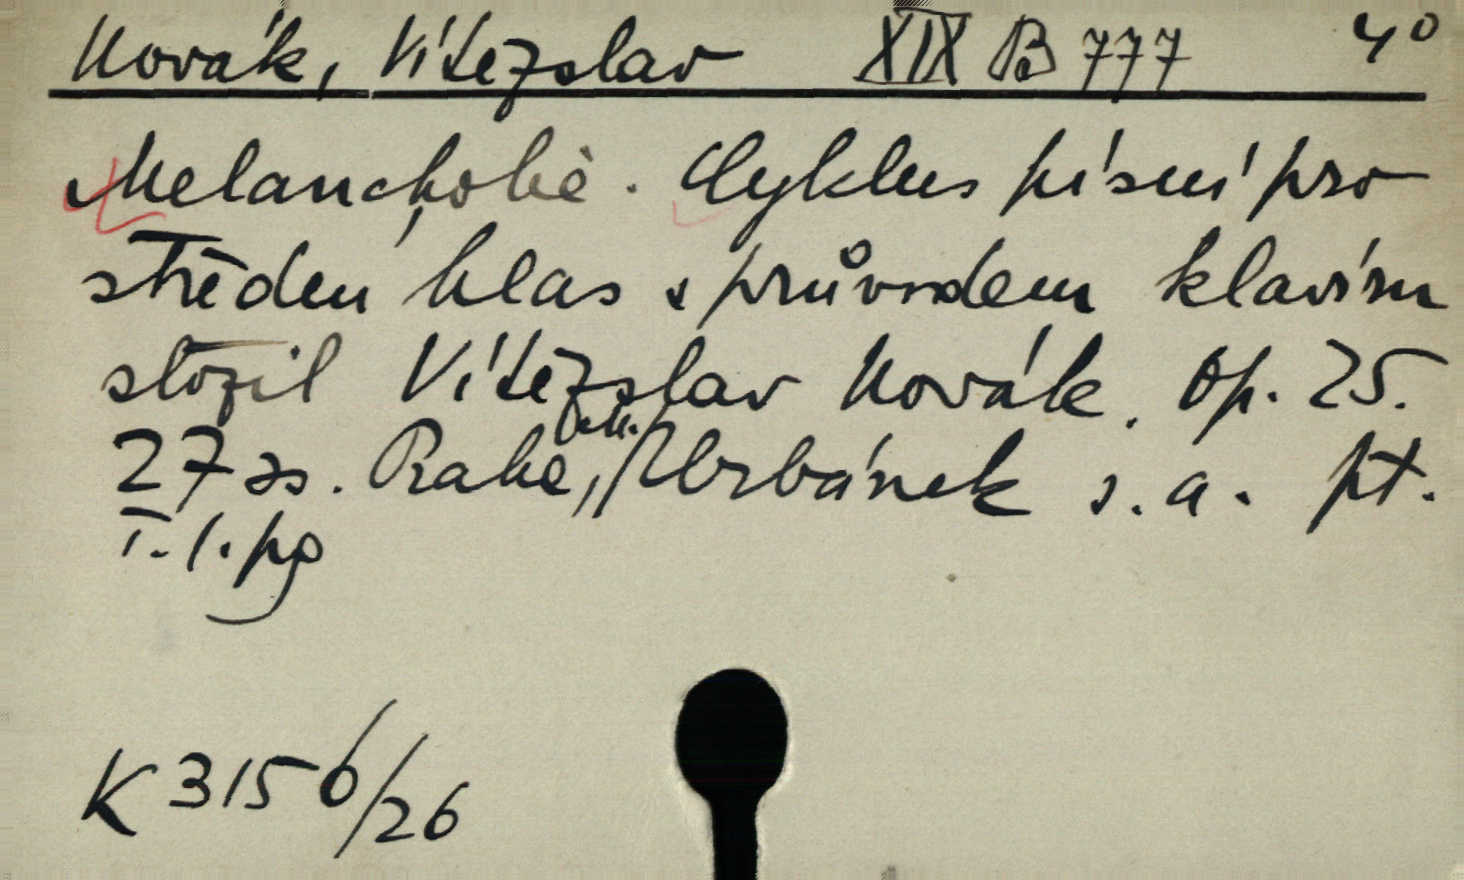 Novák, Vítezslav XIX B 777 4°
Melancholiè. Cyklus písní pro
střední hlas s průvodem klavíru
složil Vítezslav Novák. Op. 25.
27 ss. Praha, Urbánek s. a. pt.
T. l. pg
K 3156/26